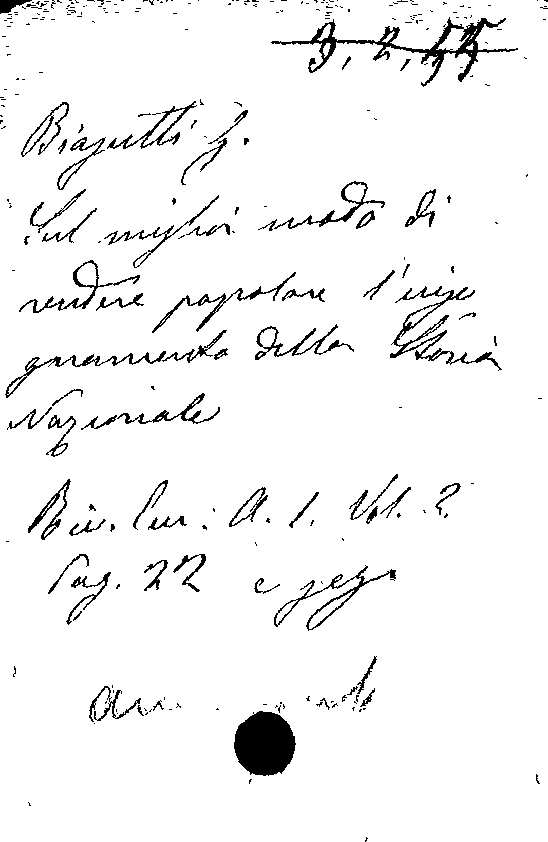 3, 2, 55
Biagutti G.
Sul miglior modo di
rendere popolare l'inse
gnamento della Storia
Nazionale
Riv. Eur: A. 1. Vol. 2
Pag. 22 e seg.